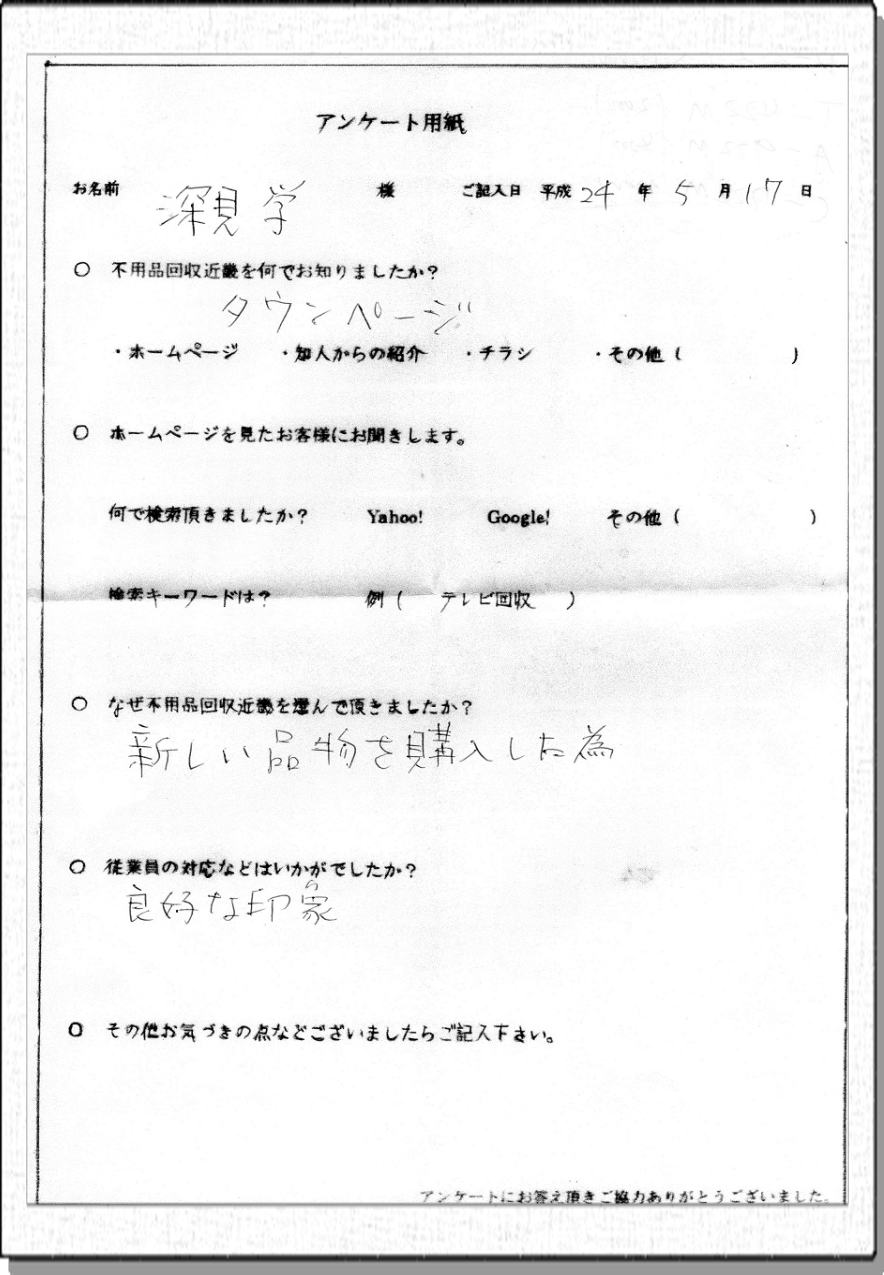 アンケート用紙
お名前 深見学 様 ご記入日 平成 24 年 5 月 17 日
○ 不用品回収近畿を何でお知りましたか？
タウンページ
・ホームページ ・知人からの紹介 ・チラシ ・その他 ( )
○ ホームページを見たお客様にお聞きします。
何で検索頂きましたか？ Yahoo! Google! その他 ( )
検索キーワードは？ 例 ( テレビ回収 )
○ なぜ不用品回収近畿を選んで頂きましたか？
新しい品物を購入した為
○ 従業員の対応などはいかがでしたか？
良好な印象
○ その他お気づきの点などございましたらご記入下さい。
アンケートにお答え頂きご協力ありがとうございました。